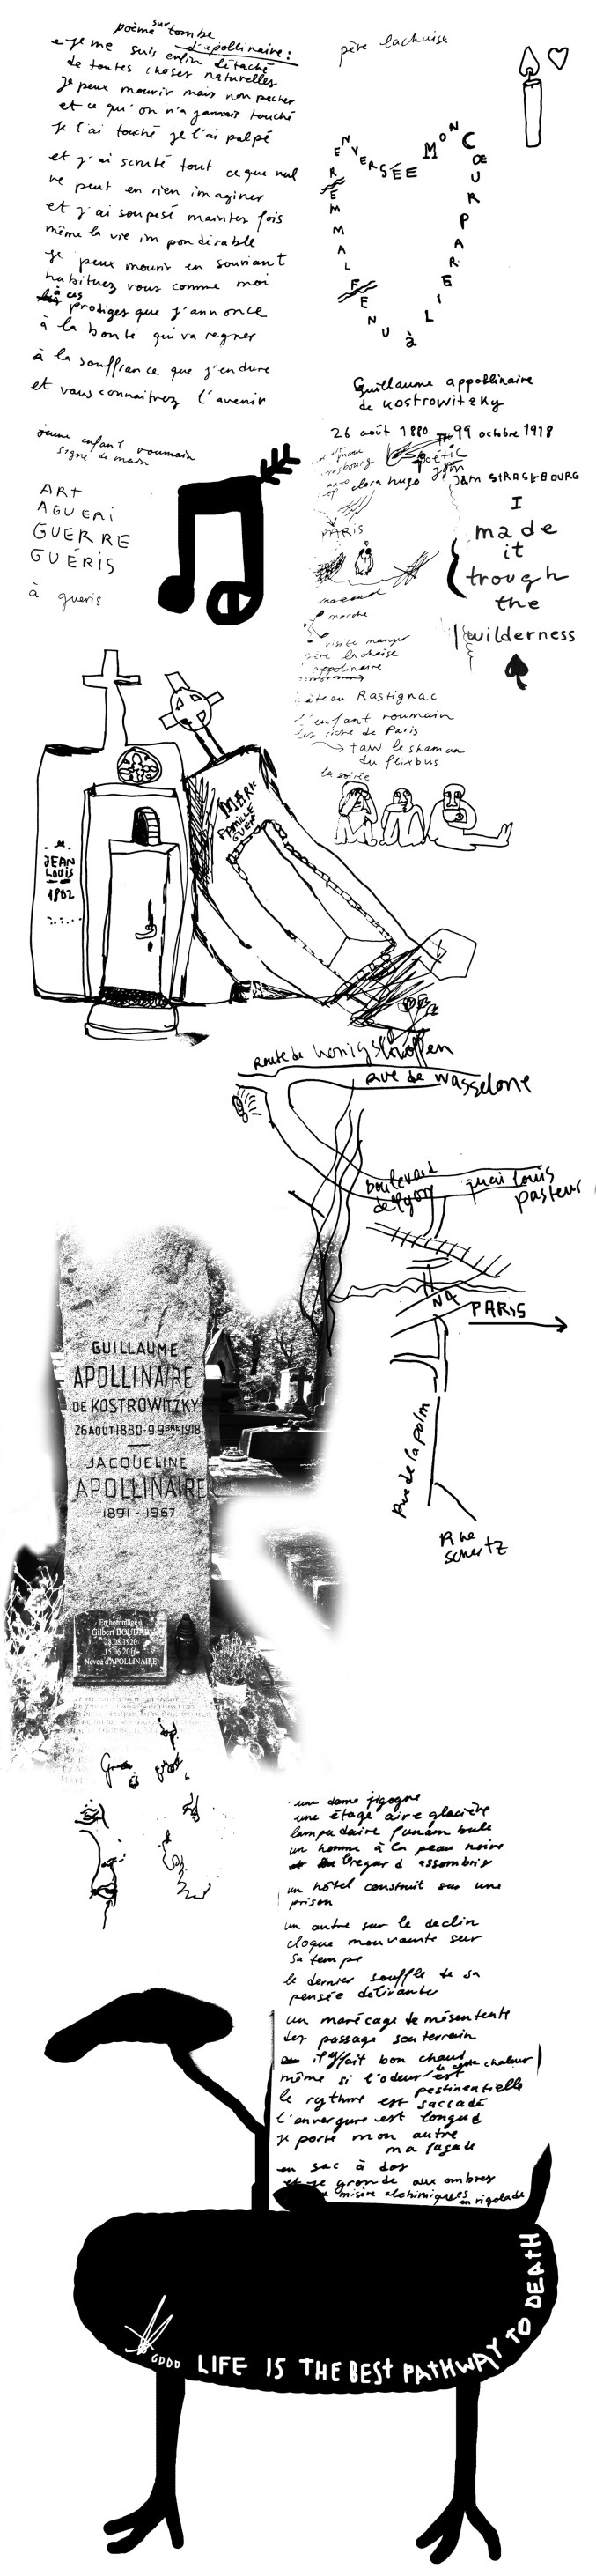 poème sur tombe
d'apollinaire :
je me suis enfin détaché
de toutes choses naturelles
je peux mourir mais non pecher
et ce qu'on n'a jamais touché
je l'ai touché je l'ai palpé
et j'ai scruté tout ce que nul
ne peut en rien imaginer
et j'ai soupesé maintes fois
même la vie impondérable
je peux mourir en souriant
habituez vous comme moi
à ces prodiges que j'annonce
à la bonté qui va regner
à la souffrance que j'endure
et vous connaitrez l'avenir
père lachaise
MON CŒUR PAREIL à UNE FLAMME RENVERSÉE
Guillaume appollinaire
de Kostrowitzky
26 août 1880 99 octobre 1918
jeune enfant roumain
signe de main
ART
AGUERI
GUERRE
GUÉRIS
à gueris
poétic
jam
clara hugo
Jam STRASBOURG
PARIS
I
made
it
trough
the
wilderness
marche
visite manger
père lachaise
appolinaire
château Rastignac
l'enfant roumain
les riche de Paris
taw le shaman
du flixbus
la soirée
JEAN
LOUIS
1802
MARK
FAMILLE
route de Konigshoffen
rue de wasselone
boulevard
de lyon
quai louis
pasteur
PARIS
rue de la palm
Rue
schertz
GUILLAUME
APOLLINAIRE
DE KOSTROWITZKY
26 AOUT 1880 - 9 9BRE 1918
JACQUELINE
APOLLINAIRE
1891 - 1967
En hommage à
Gilbert BOUDAR
28.08.1920
15.06.2016
Neveu d'APOLLINAIRE
une dame gigogne
une étage aire glacière
lampadaire funambule
un homme à la peau noire
regard assombris
un hôtel construit sur une
prison
un autre sur le declin
cloque mouvante sur
sa tempe
le dernier souffle de sa
pensée délirante
un marécage de mésentente
des passage souterrain
il y fait bon chaud
même si l'odeur de cette chaleur est
pestinentielle
le rythme est saccadé
l'envergure est longue
je porte mon autre
ma façade
en sac à dos
et je gronde aux ombres
misère alchimiques en rigolade
GOOD LIFE IS THE BEST PATHWAY TO DEATH